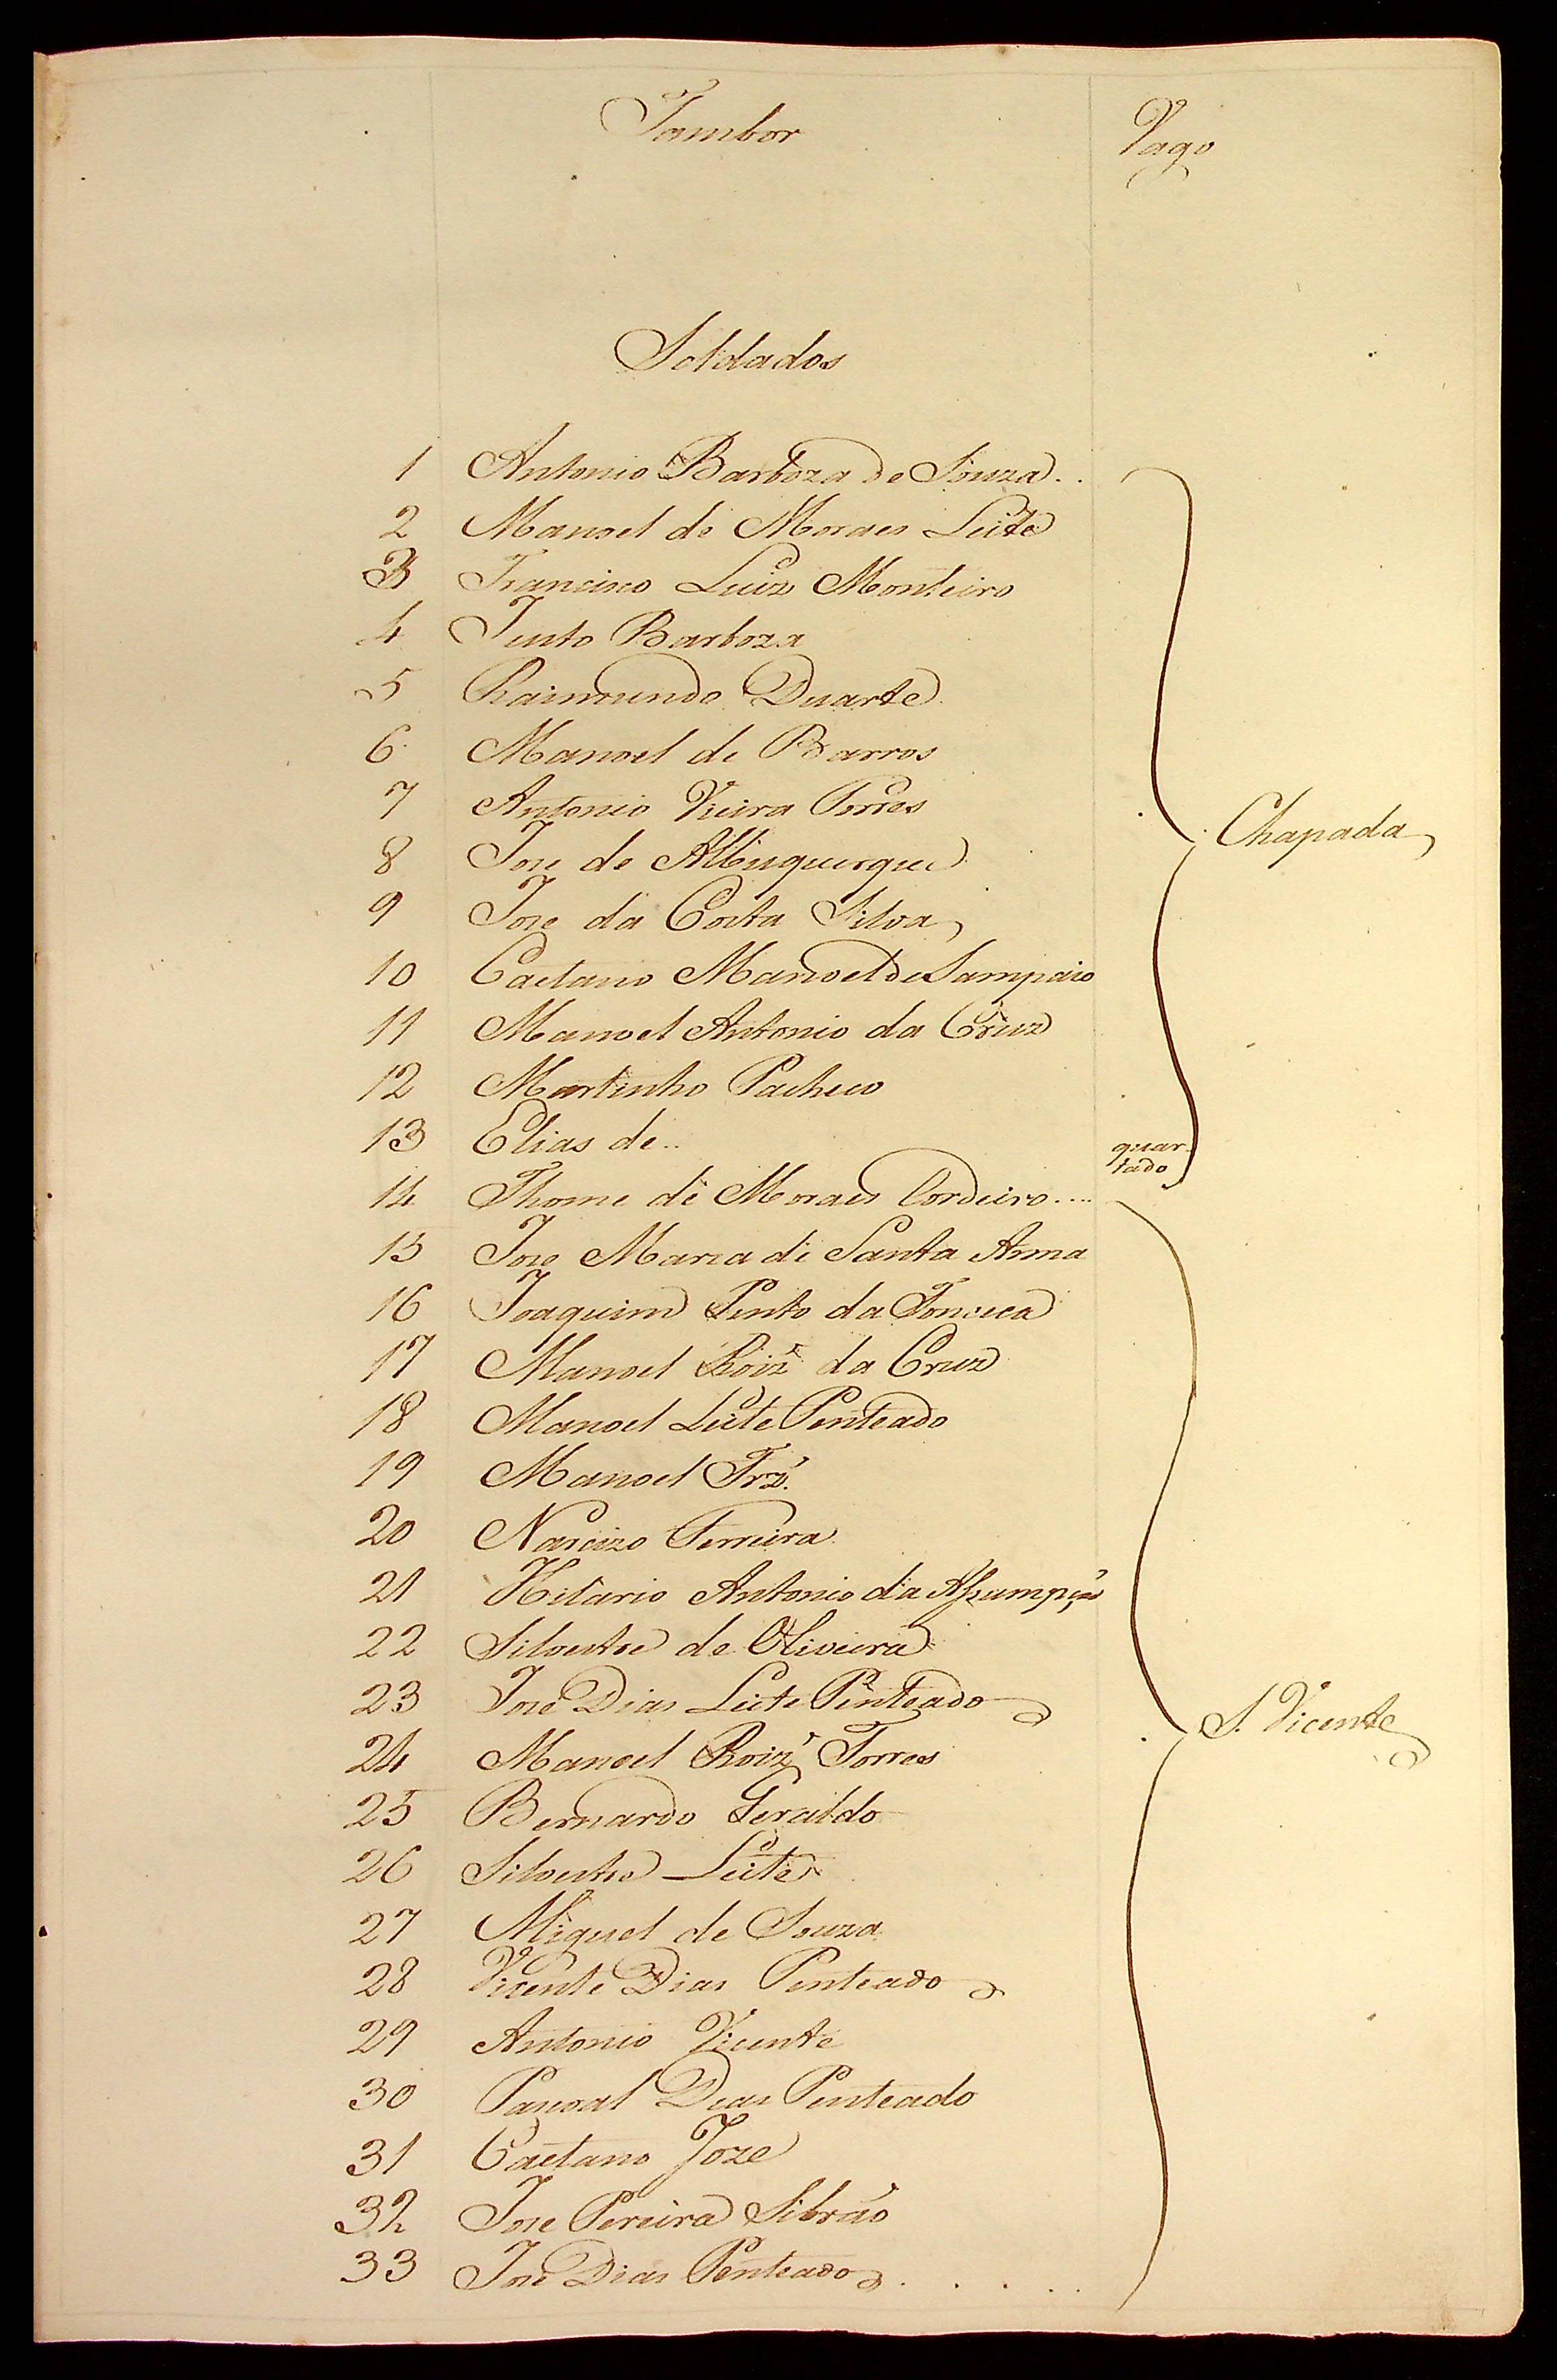 Tambor Vago
Soldados
1 Antonio Barboza de Souza..
2 Manoel de Moraes Leite
3 Francisco Luiz Monteiro
4 Justo Barboza
5 Raimundo Duarte
6 Manoel de Barros
7 Antonio Vieira Torres
8 Jose de Albuquerque
9 Jose da Costa Silva
Chapada
10 Caetano Manoel de Sampaio
11 Manoel Antonio da Cruz
12 Martinho Pacheco
13 Elias de.. quar-
tado
14 Thome de Moraes Cordeiro....
15 Jose Maria de Santa Anna
16 Joaquim Pinto da Fonseca
17 Manoel Roiz' da Cruz
18 Manoel Leite Penteado
19 Manoel Frz'.
20 Narcizo Ferreira
21 Hilario Antonio da Assumpção
22 Silvestre de Oliveira
23 José Dias Leite Penteado
S. Vicente
24 Manoel Roiz' Torres
25 Bernardo Geraldo
26 Silvestre Leite
27 Miguel de Souza
28 Vicente Dias Penteado
29 Antonio Vicente
30 Pascoal Dias Penteado
31 Caetano Joze
32 Jose Pereira Sibrão
33 José Dias Penteado . . . . .